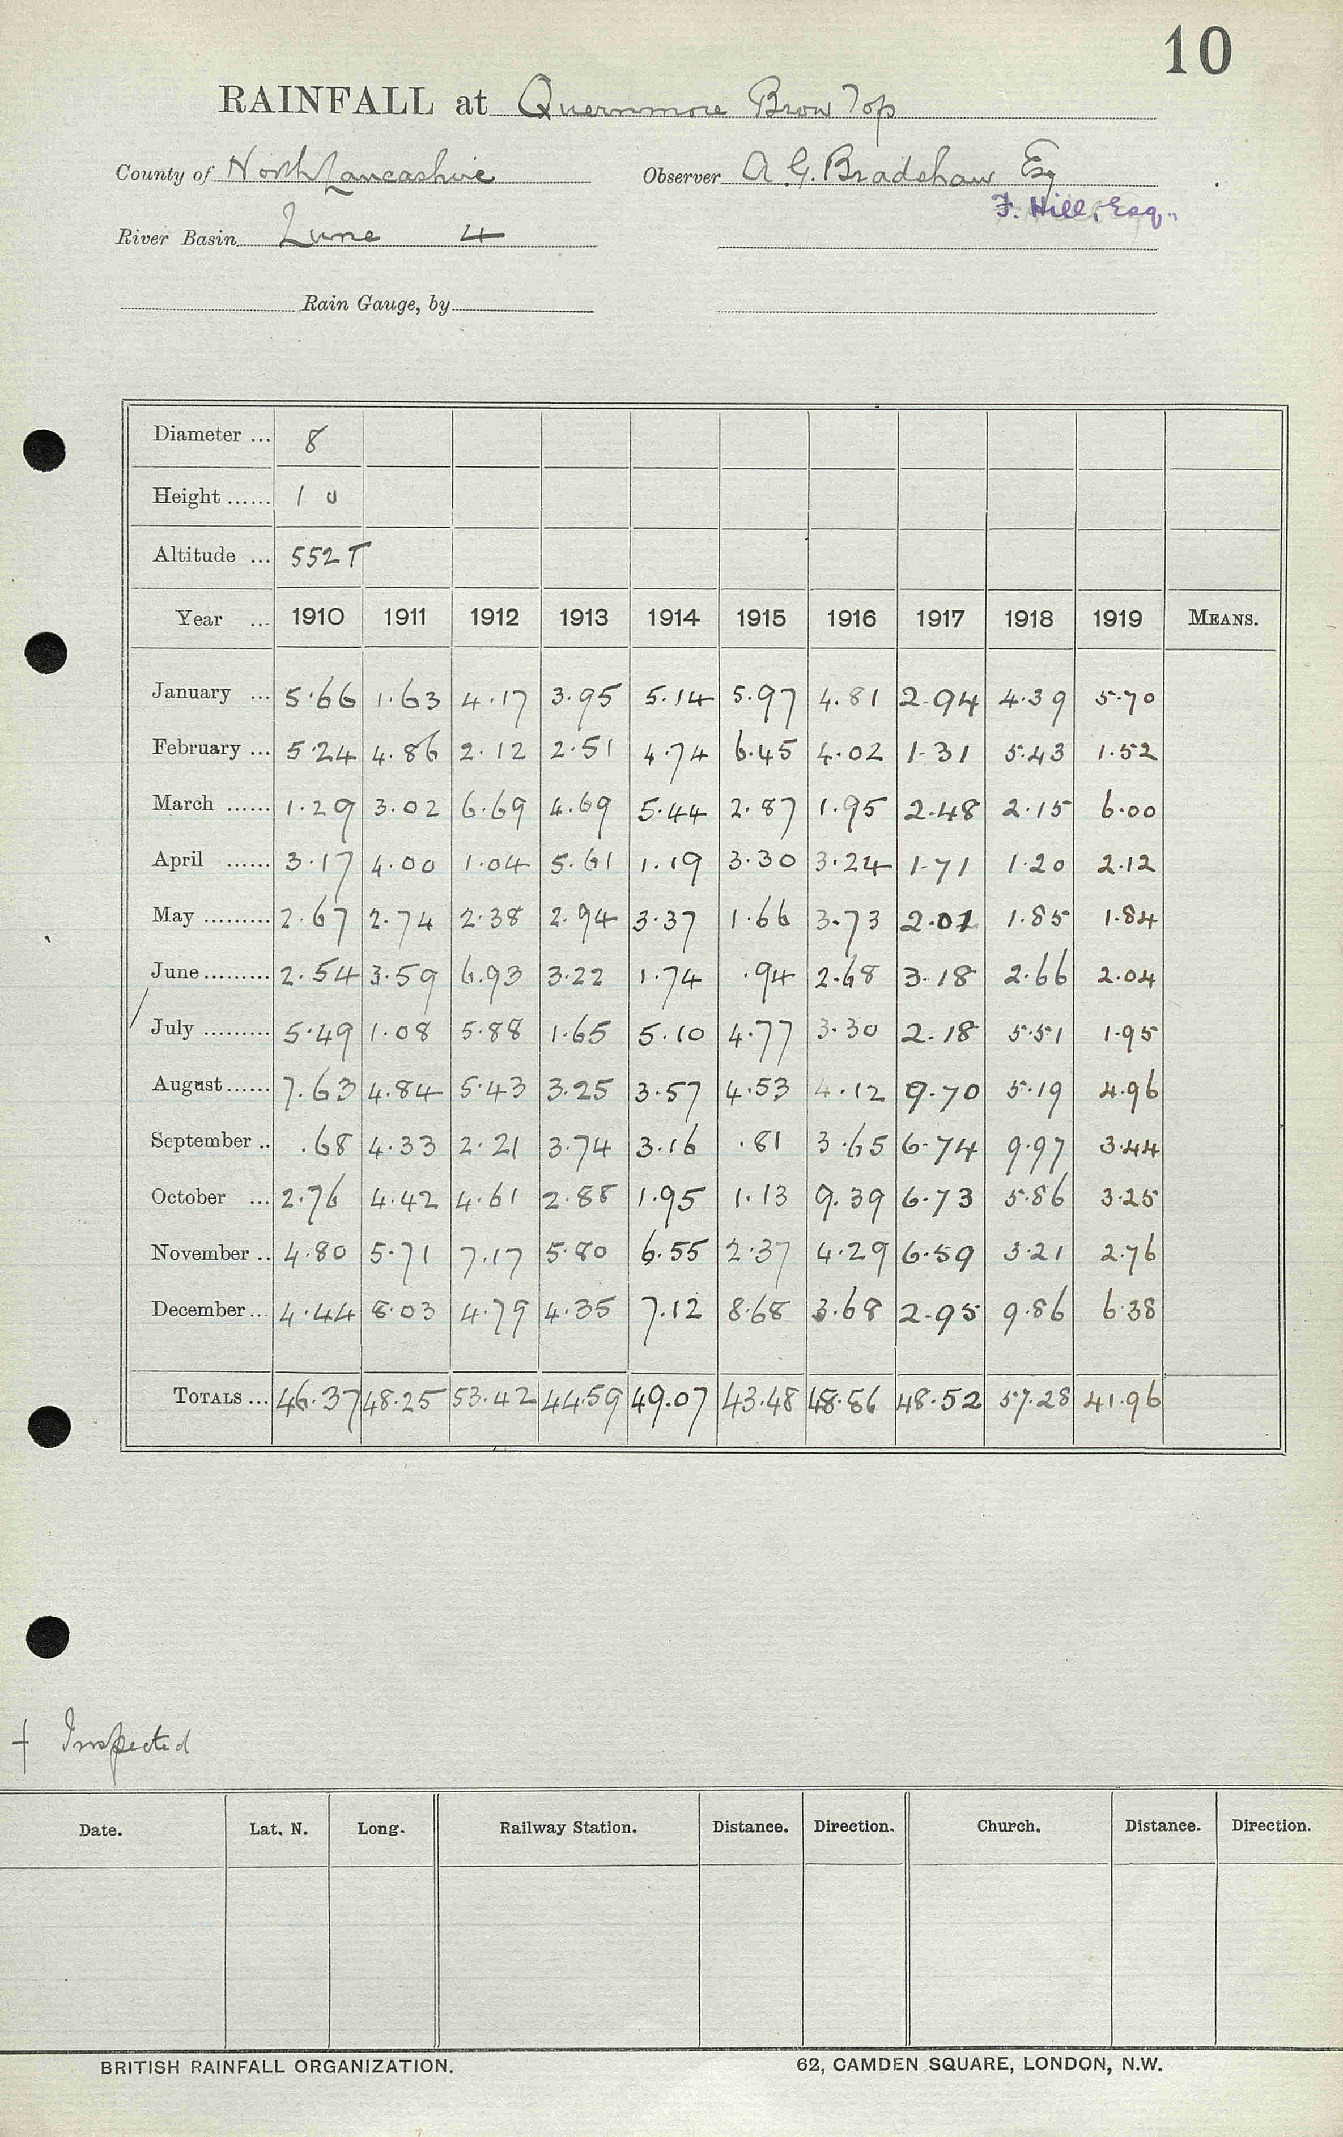 10
RAINFALL at Quernmore Brow Top
County of North Lancashire Observer A. G. Bradshaw Esq
F. Hill, Esq.
River Basin Lune 4
Rain Gauge, by
Diameter ... 8
Height ...... 1 0
Altitude ... 552 T
Year ... 1910 1911 1912 1913 1914 1915 1916 1917 1918 1919 MEANS.
January ... 5.66 1.63 4.17 3.95 5.14 5.97 4.81 2.94 4.39 5.70
February ... 5.24 4.86 2.12 2.51 4.74 6.45 4.02 1.31 5.43 1.52
March ...... 1.29 3.02 6.69 4.69 5.44 2.87 1.95 2.48 2.15 6.00
April ...... 3.17 4.00 1.04 5.61 1.19 3.30 3.24 1.71 1.20 2.12
May ......... 2.67 2.74 2.38 2.94 3.37 1.66 3.73 2.01 1.85 1.84
June ......... 2.54 3.59 6.93 3.22 1.74 .94 2.68 3.18 2.66 2.04
July ......... 5.49 1.08 5.88 1.65 5.10 4.77 3.30 2.18 5.51 1.95
August ...... 7.63 4.84 5.43 3.25 3.57 4.53 4.12 9.70 5.19 4.96
September .. .68 4.33 2.21 3.74 3.16 .81 3.65 6.74 9.97 3.44
October ... 2.76 4.42 4.61 2.88 1.95 1.13 9.39 6.73 5.86 3.25
November .. 4.80 5.71 7.17 5.80 6.55 2.37 4.29 6.59 3.21 2.76
December ... 4.44 8.03 4.79 4.35 7.12 8.68 3.68 2.95 9.86 6.38
TOTALS ... 46.37 48.25 53.42 44.59 49.07 43.48 48.86 48.52 57.28 41.96
† Inspected
Date. Lat. N. Long. Railway Station. Distance. Direction. Church. Distance. Direction.
BRITISH RAINFALL ORGANIZATION. 62, CAMDEN SQUARE, LONDON, N.W.